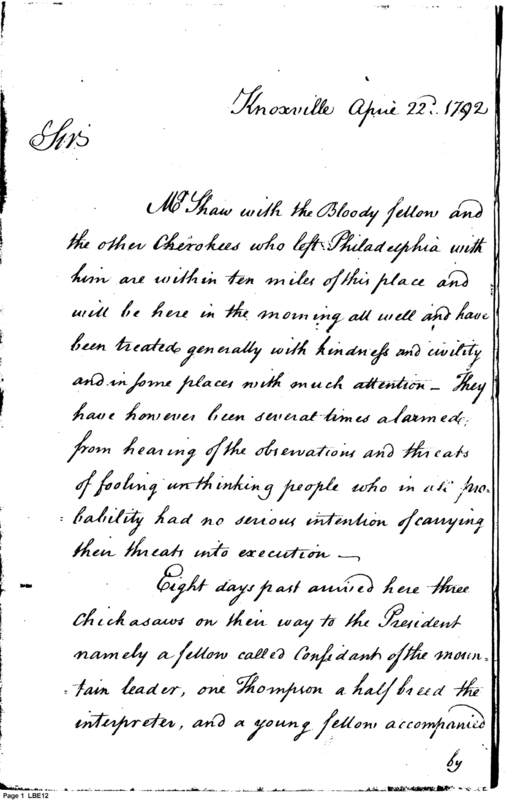 Knoxville April 22d. 1792
Sir
Mr Shaw with the Bloody fellow and
the other Cherokees who left Philadelphia with
him are within ten miles of this place and
will be here in the morning all well and have
been treated generally with kindness and civility
and in some places with much attention — They
have however been several times alarmed,
from hearing of the observations and threats
of fooling unthinking people who in all pro-
bability had no serious intention of carrying
their threats into execution —
Eight days past arrived here three
Chickasaws on their way to the President
namely a fellow called Confidant of the moun=
=tain leader, one Thompson a half breed the
interpreter, and a young fellow accompanied
by
Page 1 LBE12